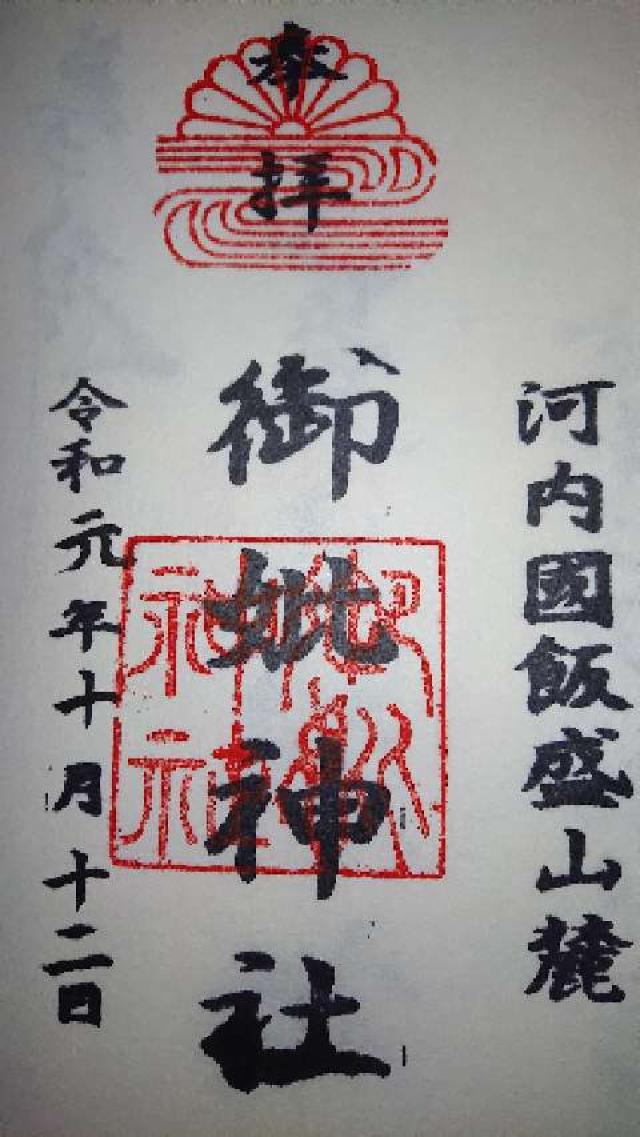 河内國飯盛山麓
奉拝
御妣神社
令和元年十月十二日